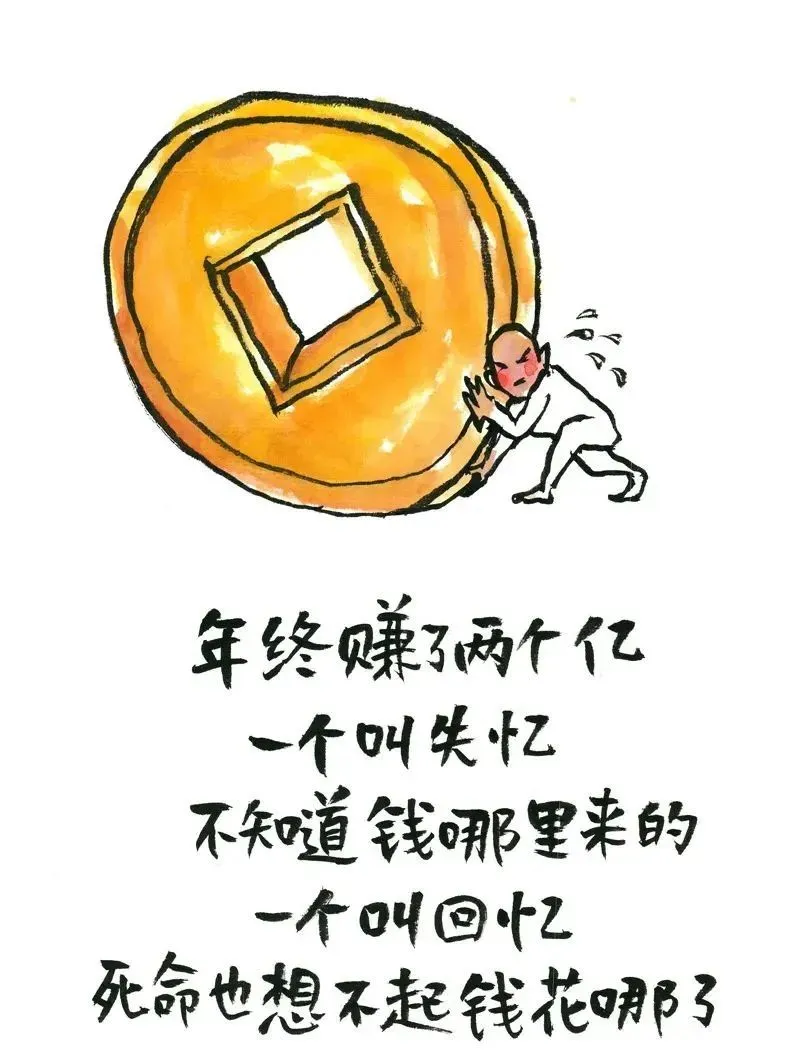 年终赚了两个亿
一个叫失忆
不知道钱哪里来的
一个叫回忆
死命也想不起钱花哪了